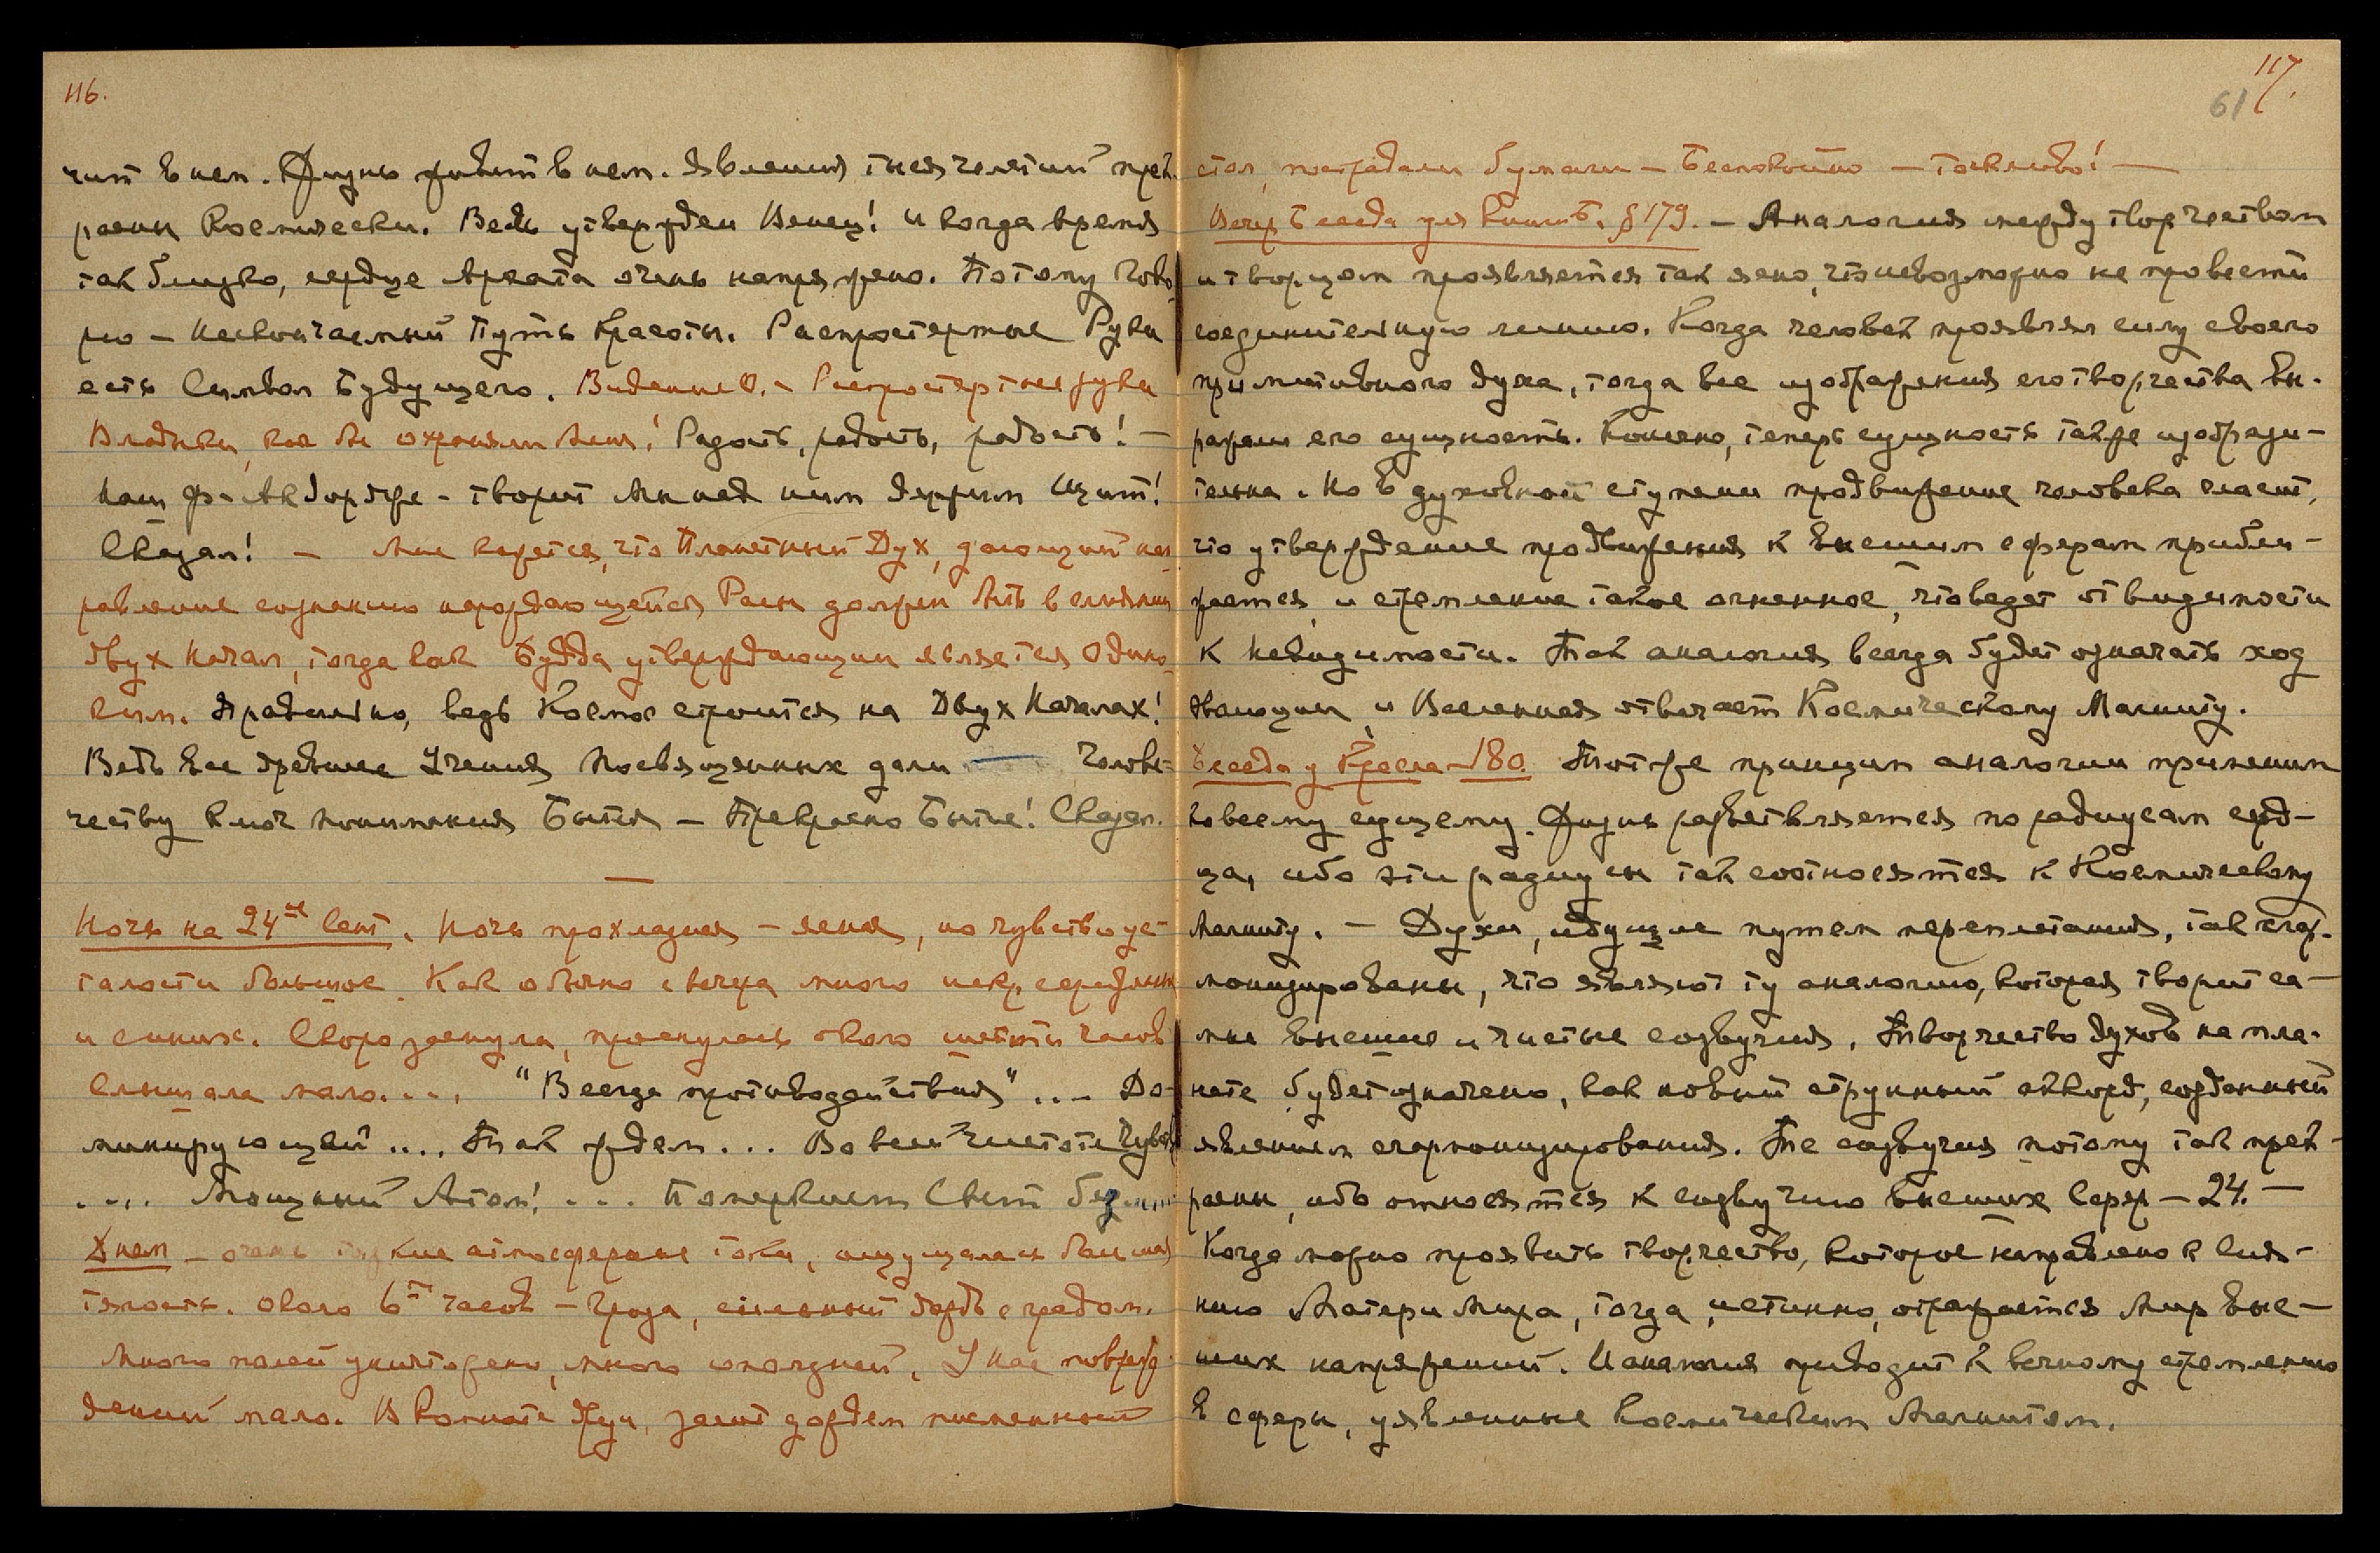 116.
чит в нем. Жизнь живит в нем. Явления тысячелетий прек-
расны космически. Ведь утвержден Венец! И когда время
так близко, сердце Архата очень напряжено. Потому Гово-
рю – нескончаемый Путь Красоты. Распростертые Руки
есть Символ Будущего. Видение О. – Распростертые руки
Владыки, кое Вы охраняли Меня! Радость, радость, радость! –
Наш Ф- Аккордже – творит Мы над ним держим Щит!
Сказал! – Мне кажется, что Планетный Дух, дающий нап-
равление сознанию нарождающейся Расы должен быть в слиянии
двух Начал, тогда как Будда утверждающий является Одино-
ким. Правильно, ведь Космос строится на Двух Началах!
Ведь все древние Учения Посвященных дали — Челове-
честву ключ понимания Бытия – Прекрасно Бытие! Сказал.
—
Ночь на 24ое Сент. Ночь прохладная – ясная, но чувство ус-
талости большое. Как обычно с вечера много искр, серебряных
и синих. Скоро заснула, проснулась около шести часов
Слышала мало.... "Всегда противодействия"... До-
минирующей.... Так ждем... Во всей чистоте Чувств
.... Мощный Атом!... Померкнет Свет без
Днем – очень тяжкие атмосферные токи, ощущалась большая
тяжесть. Около 6ти часов – Гроза, сильный дождь с градом.
Много полей уничтожено, много оползней. У нас повреж-
дений мало. В комнате Яуи, залит дождем письменный
117.
61
стол, пострадали бумаги – Беспокойно – Тоскливо! —
Вечер Беседа для Книги Б. § 179. – Аналогия между творчеством
и творцом проявляется так ясно, что невозможно не провести
соединительную линию. Когда человек проявлял силу своего
примитивного духа, тогда все изображения его творчества вы-
ражали его сущность. Конечно, теперь сущность также изобрази-
тельна. Но в духовной ступени продвижение человека гласит,
что утверждение продвижения к высшим сферам прибли-
жается, и стремление такое огненное, что ведет от видимости
к невидимости. Так аналогия всегда будет означать ход
эволюции, и Вселенная отвечает Космическому Магниту.
Беседа у Кресла – 180. Тот же принцип аналогии применим
ко всему сущему. Жизнь разветвляется по радиусам серд-
ца, ибо эти радиусы так соотносятся к Космическому
Магниту. – Духи, идущие путем переплетания, так сгар-
монизированы, что являют ту аналогию, которая творит са-
мые высшие и чистые созвучия. Творчество духов на пла-
нете будет означено, как новый струнный аккорд, созданный
явлением сгармонизирования. Те созвучия потому так прек-
расны, ибо относятся к созвучию высших Сфер – 24. –
Когда можно проявить творчество, которое направлено к Сия-
нию Матери Мира, тогда, истинно, отражается Мир выс-
ших напряжений. И аналогия приводит к вечному стремлению
в сферы, уявленные Космическим Магнитом.